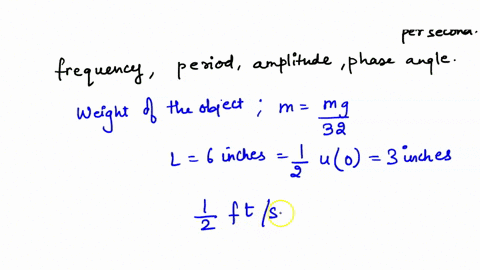 per second.
frequency, period, amplitude, phase angle.
Weight of the object ; m = mg/32
L = 6 inches = 1/2 u(0) = 3 inches
1/2 ft/s.